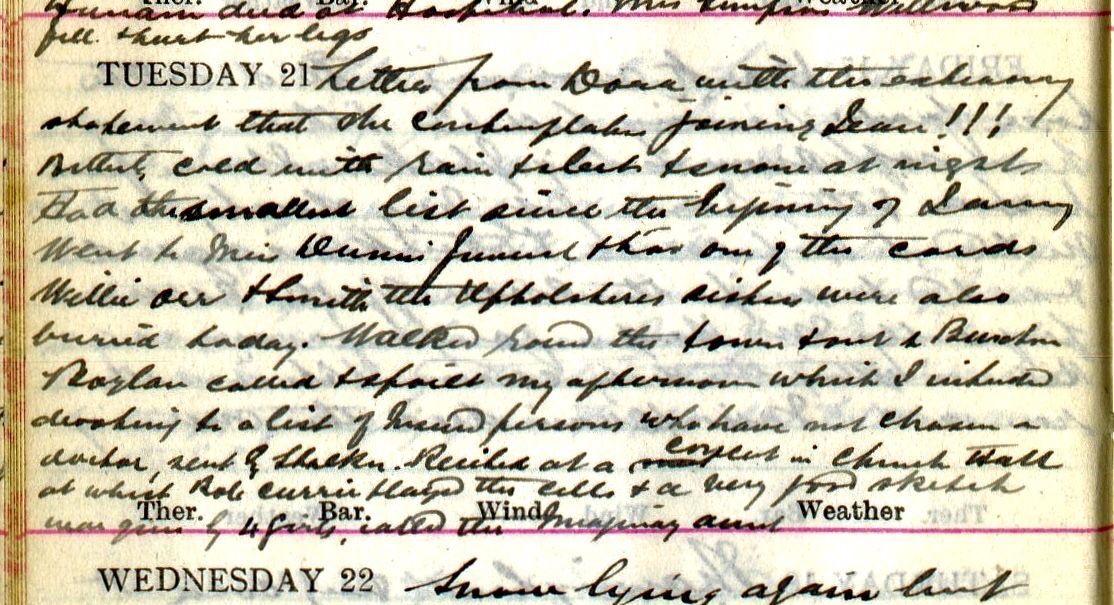 Ther. Bar. Wind Weather
died at Hospital. Mrs Simpson
fell & hurt her legs
TUESDAY 21 Letter from Dora with the
statement that she contemplates joining Dean!!!
Bitterly cold with rain & sleet & snow at night
Had the smallest list since the beginning of
Went to Mrs funeral & had one of the cards
Willie Orr & Smith the Upholsterers sister were also
buried today. Walked round the town & out to
Boylan called & spoilt my afternoon which I intended
devoting to a list of Insured persons who have not chosen a
doctor, sent by . Recited at a concert in Church Hall
at which Bob Currie played the cello & a very good sketch
was given by 4 Girls, called the Imaginary aunt
Ther. Bar. Wind Weather
WEDNESDAY 22 Snow lying again but